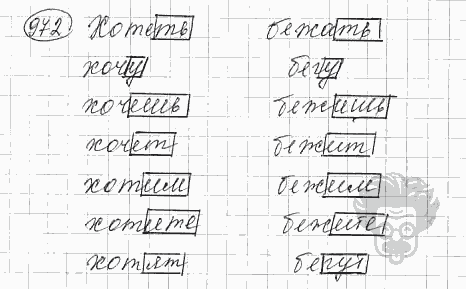 972 Хотеть бежать
хочу бегу
хочешь бежишь
хочет бежит
хотим бежим
хотите бежите
хотят бегут